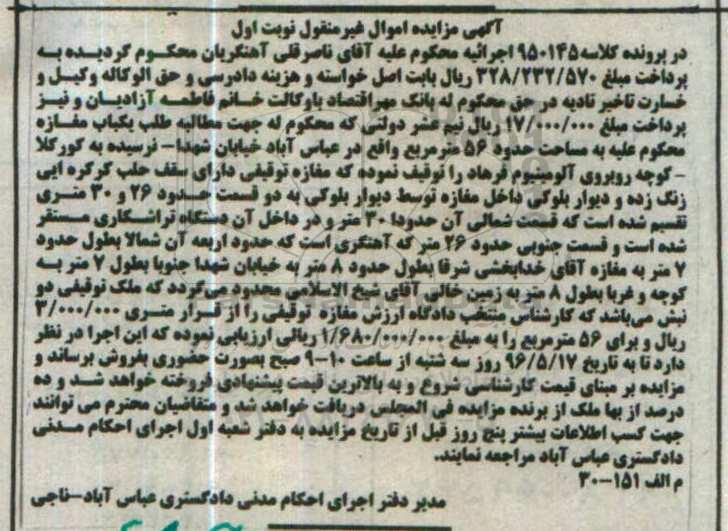 آگهی مزایده اموال غیرمنقول نوبت اول
در پرونده کلاسه ۹۵۰۱۴۵ اجرائیه محکوم علیه آقای ناصرقلی آهنگریان محکوم گردیده به
پرداخت مبلغ ۳۲۸/۲۳۲/۵۷۰ ریال بابت اصل خواسته و هزینه دادرسی و حق الوکاله وکیل و
خسارت تاخیر تادیه در حق محکوم له بانک مهراقتصاد باوکالت خانم فاطمه آزادیان و نیز
پرداخت مبلغ ۱۷/۰۰۰/۰۰۰ ریال نیم عشر دولتی که محکوم له جهت مطالبه طلب یکباب مغازه
محکوم علیه به مساحت حدود ۵۶ مترمربع واقع در عباس آباد خیابان شهدا- نرسیده به کورکلا
-کوچه روبروی آلومینیوم فرهاد را توقیف نموده که مغازه توقیفی دارای سقف حلب کرکره ایی
زنگ زده و دیوار بلوکی داخل مغازه توسط دیوار بلوکی به دو قسمت حدود ۲۶ و ۳۰ متری
تقسیم شده است که قسمت شمالی آن حدودا ۳۰ متر و در داخل آن دستگاه تراشکاری مستقر
شده است و قسمت جنوبی حدود ۲۶ متر که آهنگری است که حدود اربعه آن شمالا بطول حدود
۷ متر به مغازه آقای خدابخشی شرقا بطول حدود ۸ متر به خیابان شهدا جنوبا بطول ۷ متر به
کوچه و غربا بطول ۸ متر به زمین خالی آقای شیخ الاسلامی محدود می‌گردد که ملک توقیفی دو
نبش می‌باشد که کارشناس منتخب دادگاه ارزش مغازه توقیفی را از قرار متری ۳/۰۰۰/۰۰۰
ریال و برای ۵۶ مترمربع را به مبلغ ۱/۶۸۰/۰۰۰/۰۰۰ ریالی ارزیابی نموده که این اجرا در نظر
دارد تا به تاریخ ۹۶/۵/۱۷ روز سه شنبه از ساعت ۱۰-۹ صبح بصورت حضوری بفروش برساند و
مزایده بر مبنای قیمت کارشناسی شروع و به بالاترین قیمت پیشنهادی فروخته خواهد شد و ده
درصد از بها ملک از برنده مزایده فی المجلس دریافت خواهد شد و متقاضیان محترم می توانند
جهت کسب اطلاعات بیشتر پنج روز قبل از تاریخ مزایده به دفتر شعبه اول اجرای احکام مدنی
دادگستری عباس آباد مراجعه نمایند.
م الف ۱۵۱-۳۰
مدیر دفتر اجرای احکام مدنی دادگستری عباس آباد-ناجی